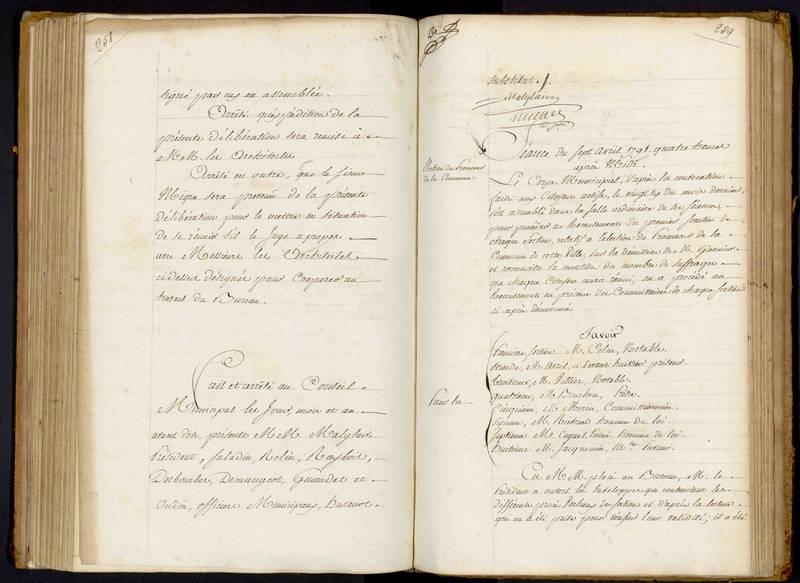 258
signé par eux en assemblée.
Arrêté qu'expédition de la
présente délibération sera remise à
M.M. les Architectes
Arrêté en outre, que le Sieur
Mique sera prévenu de la présente
délibération pour le mettre en situation
de se réunir s'il le Juge apropos
avec Messieurs les Architectes
ci dessus désignés pour Coopérer au
travail du Bureau.
Fait et arrêté au Conseil
Municipal les Jour, mois et an
avant dits, présents M.M.
Président, Saladin, Rolin,
Demangeot, et
officiers Municipaux,
259
substitut.
Séance du Sept Avril 1791. quatre heures
après Midi.
Election du Procureur
de la Commune
Le Corps Municipal, d'après la convocation
faite aux Citoyens actifs, le vingt six du mois dernier,
s'est assemblé dans la salle ordinaire de ses séances,
pour procéder au recensement du premier scrutin de
chaque section, relatif à l'élection du Procureur de la
Commune de cette Ville, sur la démission de M.
et reconnaître la quotité du nombre de suffrages
que chaque Citoyen aura réuni, on a procédé au
recensement en présence des Commissaires de chaque section
ci après dénommés
Savoir
Première section M. Colin, Notable.
Seconde, M. Avril, ci devant huissier priseur.
Troisieme, M. Notable.
Quatrieme, M.
Cinquieme, M. Commissionnaire.
Sixieme, M. homme de loi
Septieme M. homme de loi.
Huitieme M. Jacquemin,
Tous les
Ces M.M. placés au Bureau, M. le
Président a ouvert les Enveloppes qui contenaient les
différents procès verbaux de section et d'après la lecture
qui en a été prise pour vérifier leur validité, il a été